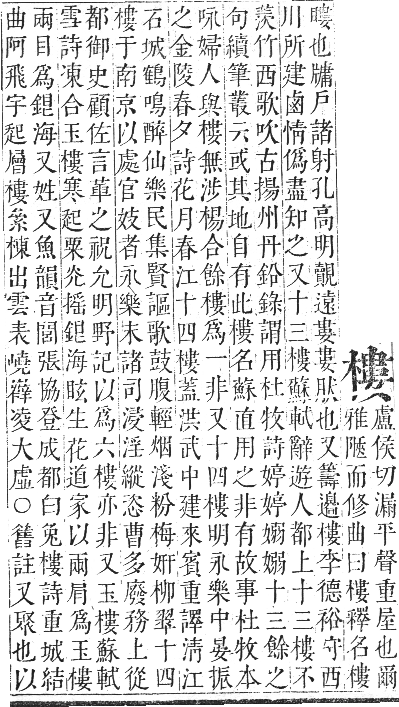 樓
盧侯切漏平聲重屋也爾
雅陿而修曲曰樓釋名樓
瞜也牖戶諸射孔高明覿遠婁婁然也又籌邊樓李德裕守西
川所建鹵情僞盡知之又十三樓蘇軾辭遊人都上十三樓不
羨竹西歌吹古揚州丹鉛錄謂用杜牧詩婷婷嫋嫋十三餘之
句續筆叢云或其地自有此樓名蘇直用之非有故事杜牧本
咏婦人與樓無涉楊合餘樓爲一非又十四樓明永樂中晏振
之金陵春夕詩花月春江十四樓蓋洪武中建來賓重譯淸江
石城鶴鳴醉仙樂民集賢謳歌鼓腹輕烟淺粉梅姸柳翠十四
樓于南京以處官妓者永樂末諸司浸淫縱恣曹多廢務上從
都御史顧佐言革之祝允明野記以爲六樓亦非又玉樓蘇軾
雪詩凍合玉樓寒起粟光搖銀海眩生花道家以兩肩爲玉樓
兩目爲銀海又姓又魚韻音閭張協登成都白兔樓詩重城結
曲阿飛宇起層樓絫棟出雲表嶢嶭凌大虛○舊註又聚也以